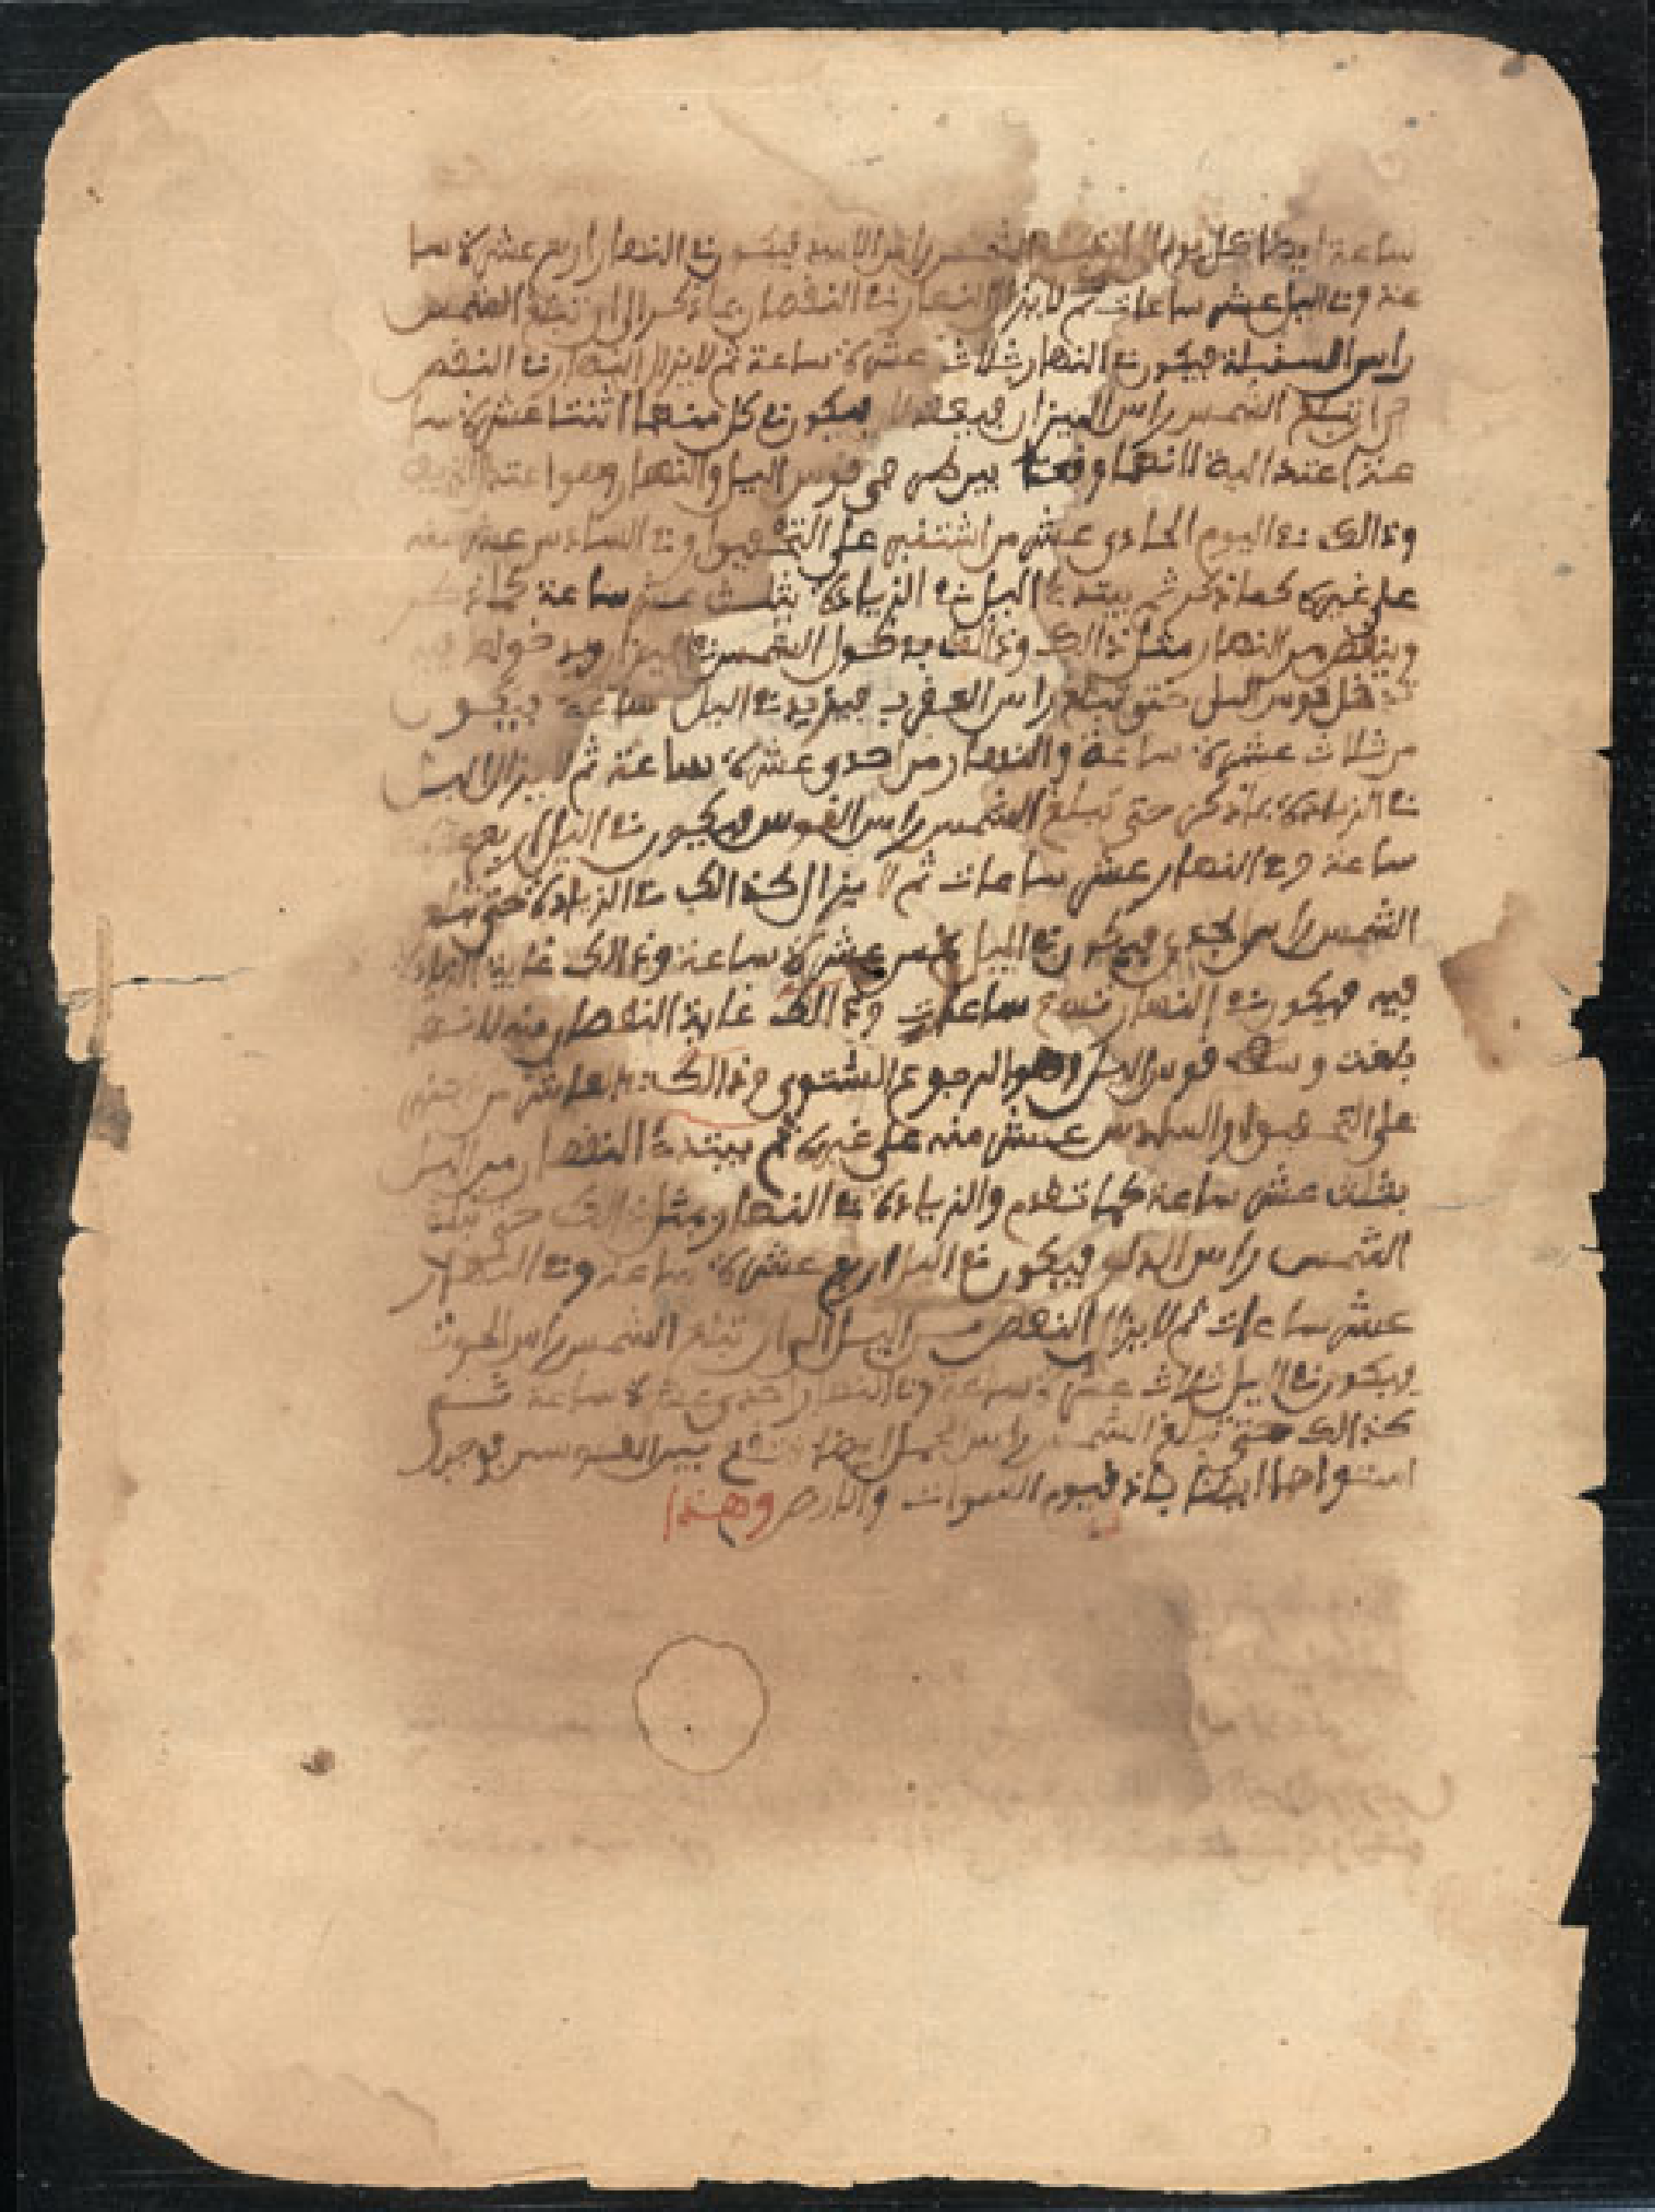 ساعة ايضا كل يوم الى ان تبلغ الشمس راس الاسد فيكون في النهار اربع عشرة سا
عة وفي اليل عشر ساعات ثم لا يزال النهار في النقصان بماذكر الى ان تبلغ الشمس
راس السنبلة فيكون في النهار ثلاث عشرة ساعة ثم لا يزال النهار في النقص
الى ان تبلغ الشمس راس الميزان فيعتدلا فيكون في كل منهما اثنتا عشرة سا
عة اعتدالية لانها وقعت بين طرفي قوس اليل والنهار وهو اعتدال
وذالك في اليوم الحادي عشر من اشتنبر على التحقيق وفي السادس عشر منه
على غيره كماذكر ثم يبتدئ اليل في الزيادة بثلث عشر ساعة كماذكر
وينقص من النهار مثل ذالك وذالك بدخول الشمس في الميزان وبدخولها فيه
تدخل قوس اليل حتى تبلغ راس العقرب فيزيد في اليل ساعة فيكون
من ثلاث عشرة ساعة والنهار من احدى عشرة ساعة ثم لا يزال اليل
في الزيادة بماذكر حتى تبلغ الشمس راس القوس فيكون في اليل اربع عشرة
ساعة وفي النهار عشر ساعات ثم لا يزال كذالك في الزيادة حتى تبلغ
الشمس راس الجدي فيكون في اليل خمس عشرة ساعة وذالك غاية الزيادة
فيه فيكون في النهار تسع ساعات وذالك غاية النقصان منه لانها
بلغت وسط قوس اليل وهو الرجوع الشتوي وذالك في العاشر من
على التحقيق والسادس عشر منه على غيره ثم يبتدئ النقصان من اليل
بثلث عشر ساعة كما تقدم والزيادة في النهار بمثل ذالك حتى تبلغ
الشمس راس الدلو فيكون في اليل اربع عشرة ساعة وفي النهار
عشر ساعات ثم لا يزال النقص من اليل الى ان تبلغ الشمس راس الحوت
فيكون في اليل ثلاث عشرة ساعة وفي النهار احدى عشرة ساعة ثم
كذالك حتى تبلغ الشمس راس الحمل ايضا بين القوسين
ايضا قيوم السموات والارض وهذا